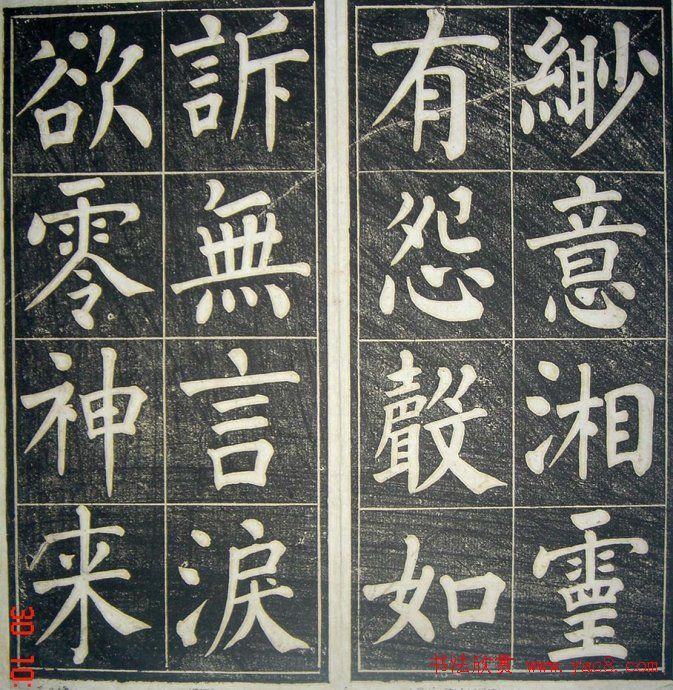 緲意湘靈
有怨聲如
訴無言淚
欲零神来
书法欣赏 www.yac8.com